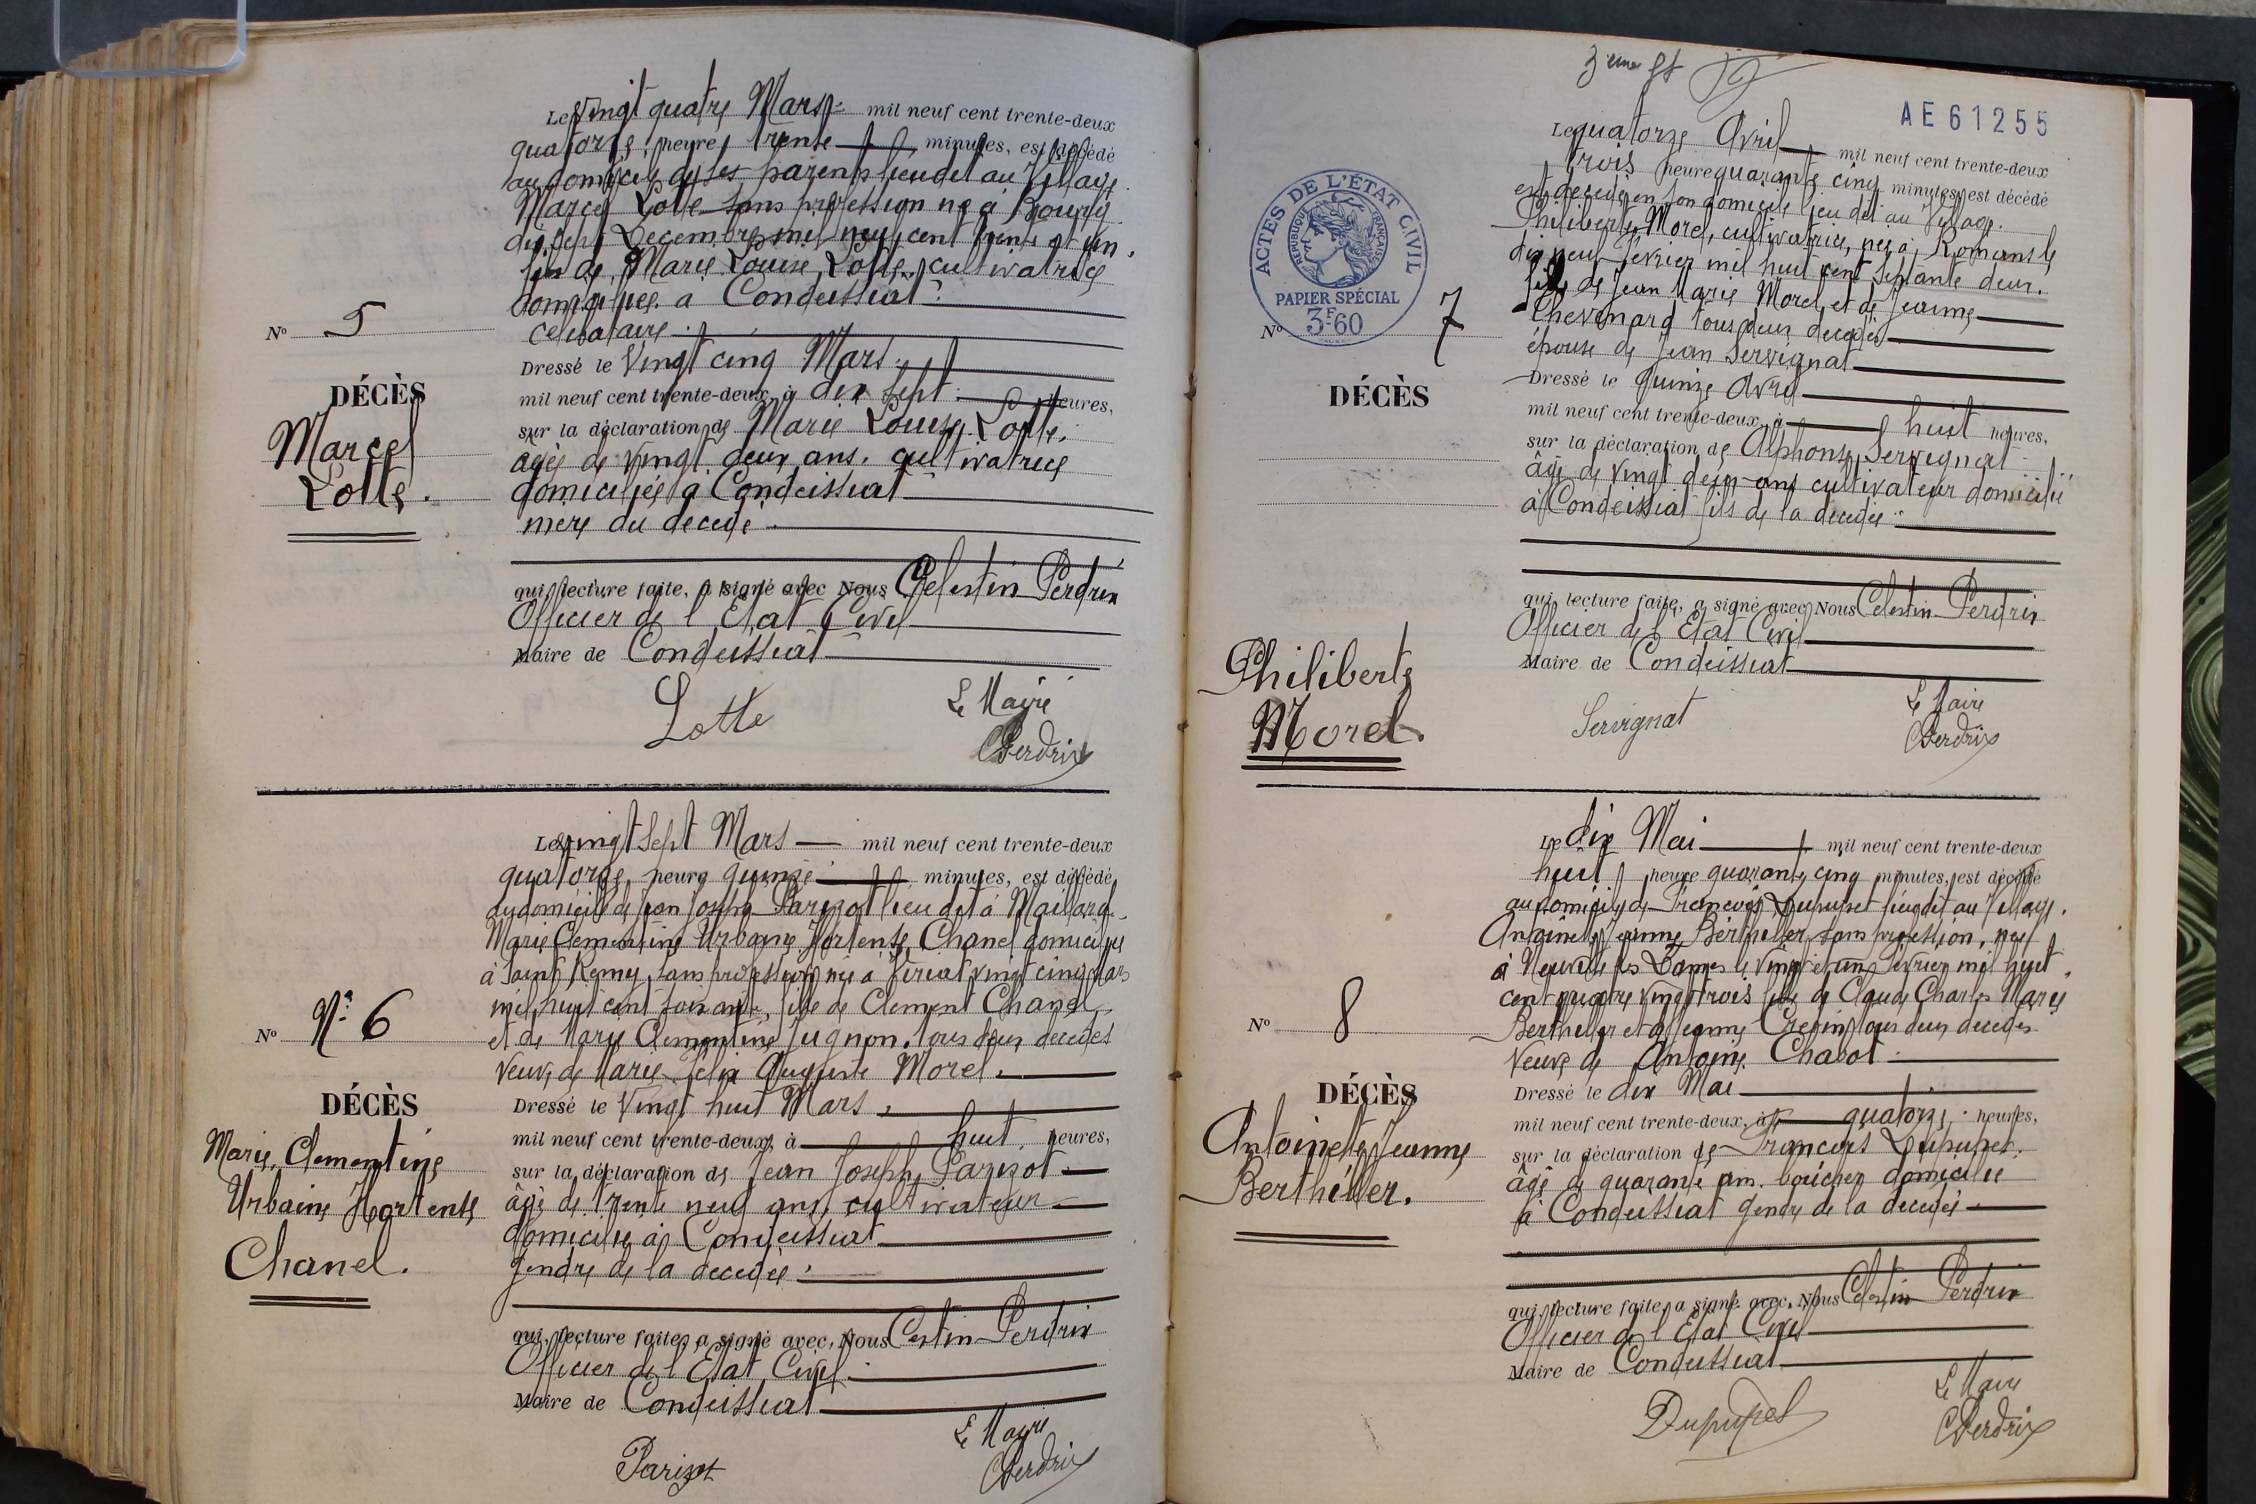 Le vingt quatre Mars mil neuf cent trente-deux
quatorze heures trente minutes, est décédé
au domicile de ses parents lieu dit au Village
Marcel Lotte sans profession né à Bourg
dix sept Decembre mil neuf cent trente et un.
fils de Marie Louise Lotte, cultivatrice
domiciliée à Condeissiat.
celibataire.
Dressé le Vingt cinq Mars.
mil neuf cent trente-deux, à dix sept heures,
sur la déclaration de Marie Louise Lotte.
agée de vingt deux ans. cultivatrice
domiciliée à Condeissiat
mère du décédé.
qui, lecture faite, a signé avec Nous Celestin Perdrix
Officier de l'Etat Civil
Maire de Condeissiat
Lotte
Le Maire
CPerdrix
No 5
DÉCÈS
Marcel
Lotte.
Le vingt sept Mars mil neuf cent trente-deux
quatorze heure quinze minutes, est décédé
au domicile de Jean Joseph Parizot lieu dit à Maillard
Marie Clementine Urbaine Hortense Chanel domiciliée
à Saint Remy, sans profession née à vingt cinq Mars
mil huit cent soixante, fille de Clement Chanel
et de Marie Clementine Jugnon. tous deux décédés
Veuve de Marie Felix Auguste Morel.
Dressé le Vingt huit Mars
mil neuf cent trente-deux, à huit heures,
sur la déclaration de Jean Joseph Parizot
âgé de trente neuf ans, cultivateur
domicilié à Condeissiat
gendre de la décédée.
qui, lecture faite, a signé avec Nous Cestin Perdrix
Officier de l'Etat Civil
Maire de Condeissiat
Parizot
Le Maire
CPerdrix
No N° 6
DÉCÈS
Marie Clementine
Urbaine Hortense
Chanel.
AE61255
ACTES DE L'ÉTAT CIVIL
RÉPUBLIQUE FRANÇAISE
PAPIER SPÉCIAL
3F60
Le quatorze Avril mil neuf cent trente-deux
trois heure quarante cinq minutes, est décédé
est décédée en son domicile lieu dit au Village.
Philiberte Morel, cultivatrice, née à Romans le
dix neuf Février mil huit cent septante deux.
fille de Jean Marie Morel et de Jeanne
Chevenard tous deux décédés
épouse de Jean Servignat
Dressé le quinze Avril
mil neuf cent trente-deux, à huit heures,
sur la déclaration de Alphonse Servignat
âgé de vingt deux ans cultivateur domicilié
à Condeissiat fils de la décédée.
qui, lecture faite, a signé avec Nous Celestin Perdrix
Officier de l'Etat Civil
Maire de Condeissiat
Servignat
Le Maire
CPerdrix
No 7
DÉCÈS
Philiberte
Morel.
Le dix Mai mil neuf cent trente-deux
huit heure quarante cinq minutes, est décédé
au domicile de François Dupupet lieu dit au Village.
Antoinette Jeanne Berthiller sans profession, née
à Neuville les Dames le vingt et un Février mil huit
cent quatre vingt trois fille de Claude Charles Marie
Berthiller et de Jeanne Crepin tous deux décédés
Veuve de Antoine Chabot.
Dressé le dix Mai
mil neuf cent trente-deux, à quatorze heures,
sur la déclaration de François Dupupet.
âgé de quarante ans. boucher domicilié
à Condeissiat gendre de la décédée
qui, lecture faite, a signé avec Nous Celestin Perdrix
Officier de l'Etat Civil
Maire de Condeissiat
Dupupet
Le Maire
CPerdrix
No 8
DÉCÈS
Antoinette Jeanne
Berthiller.